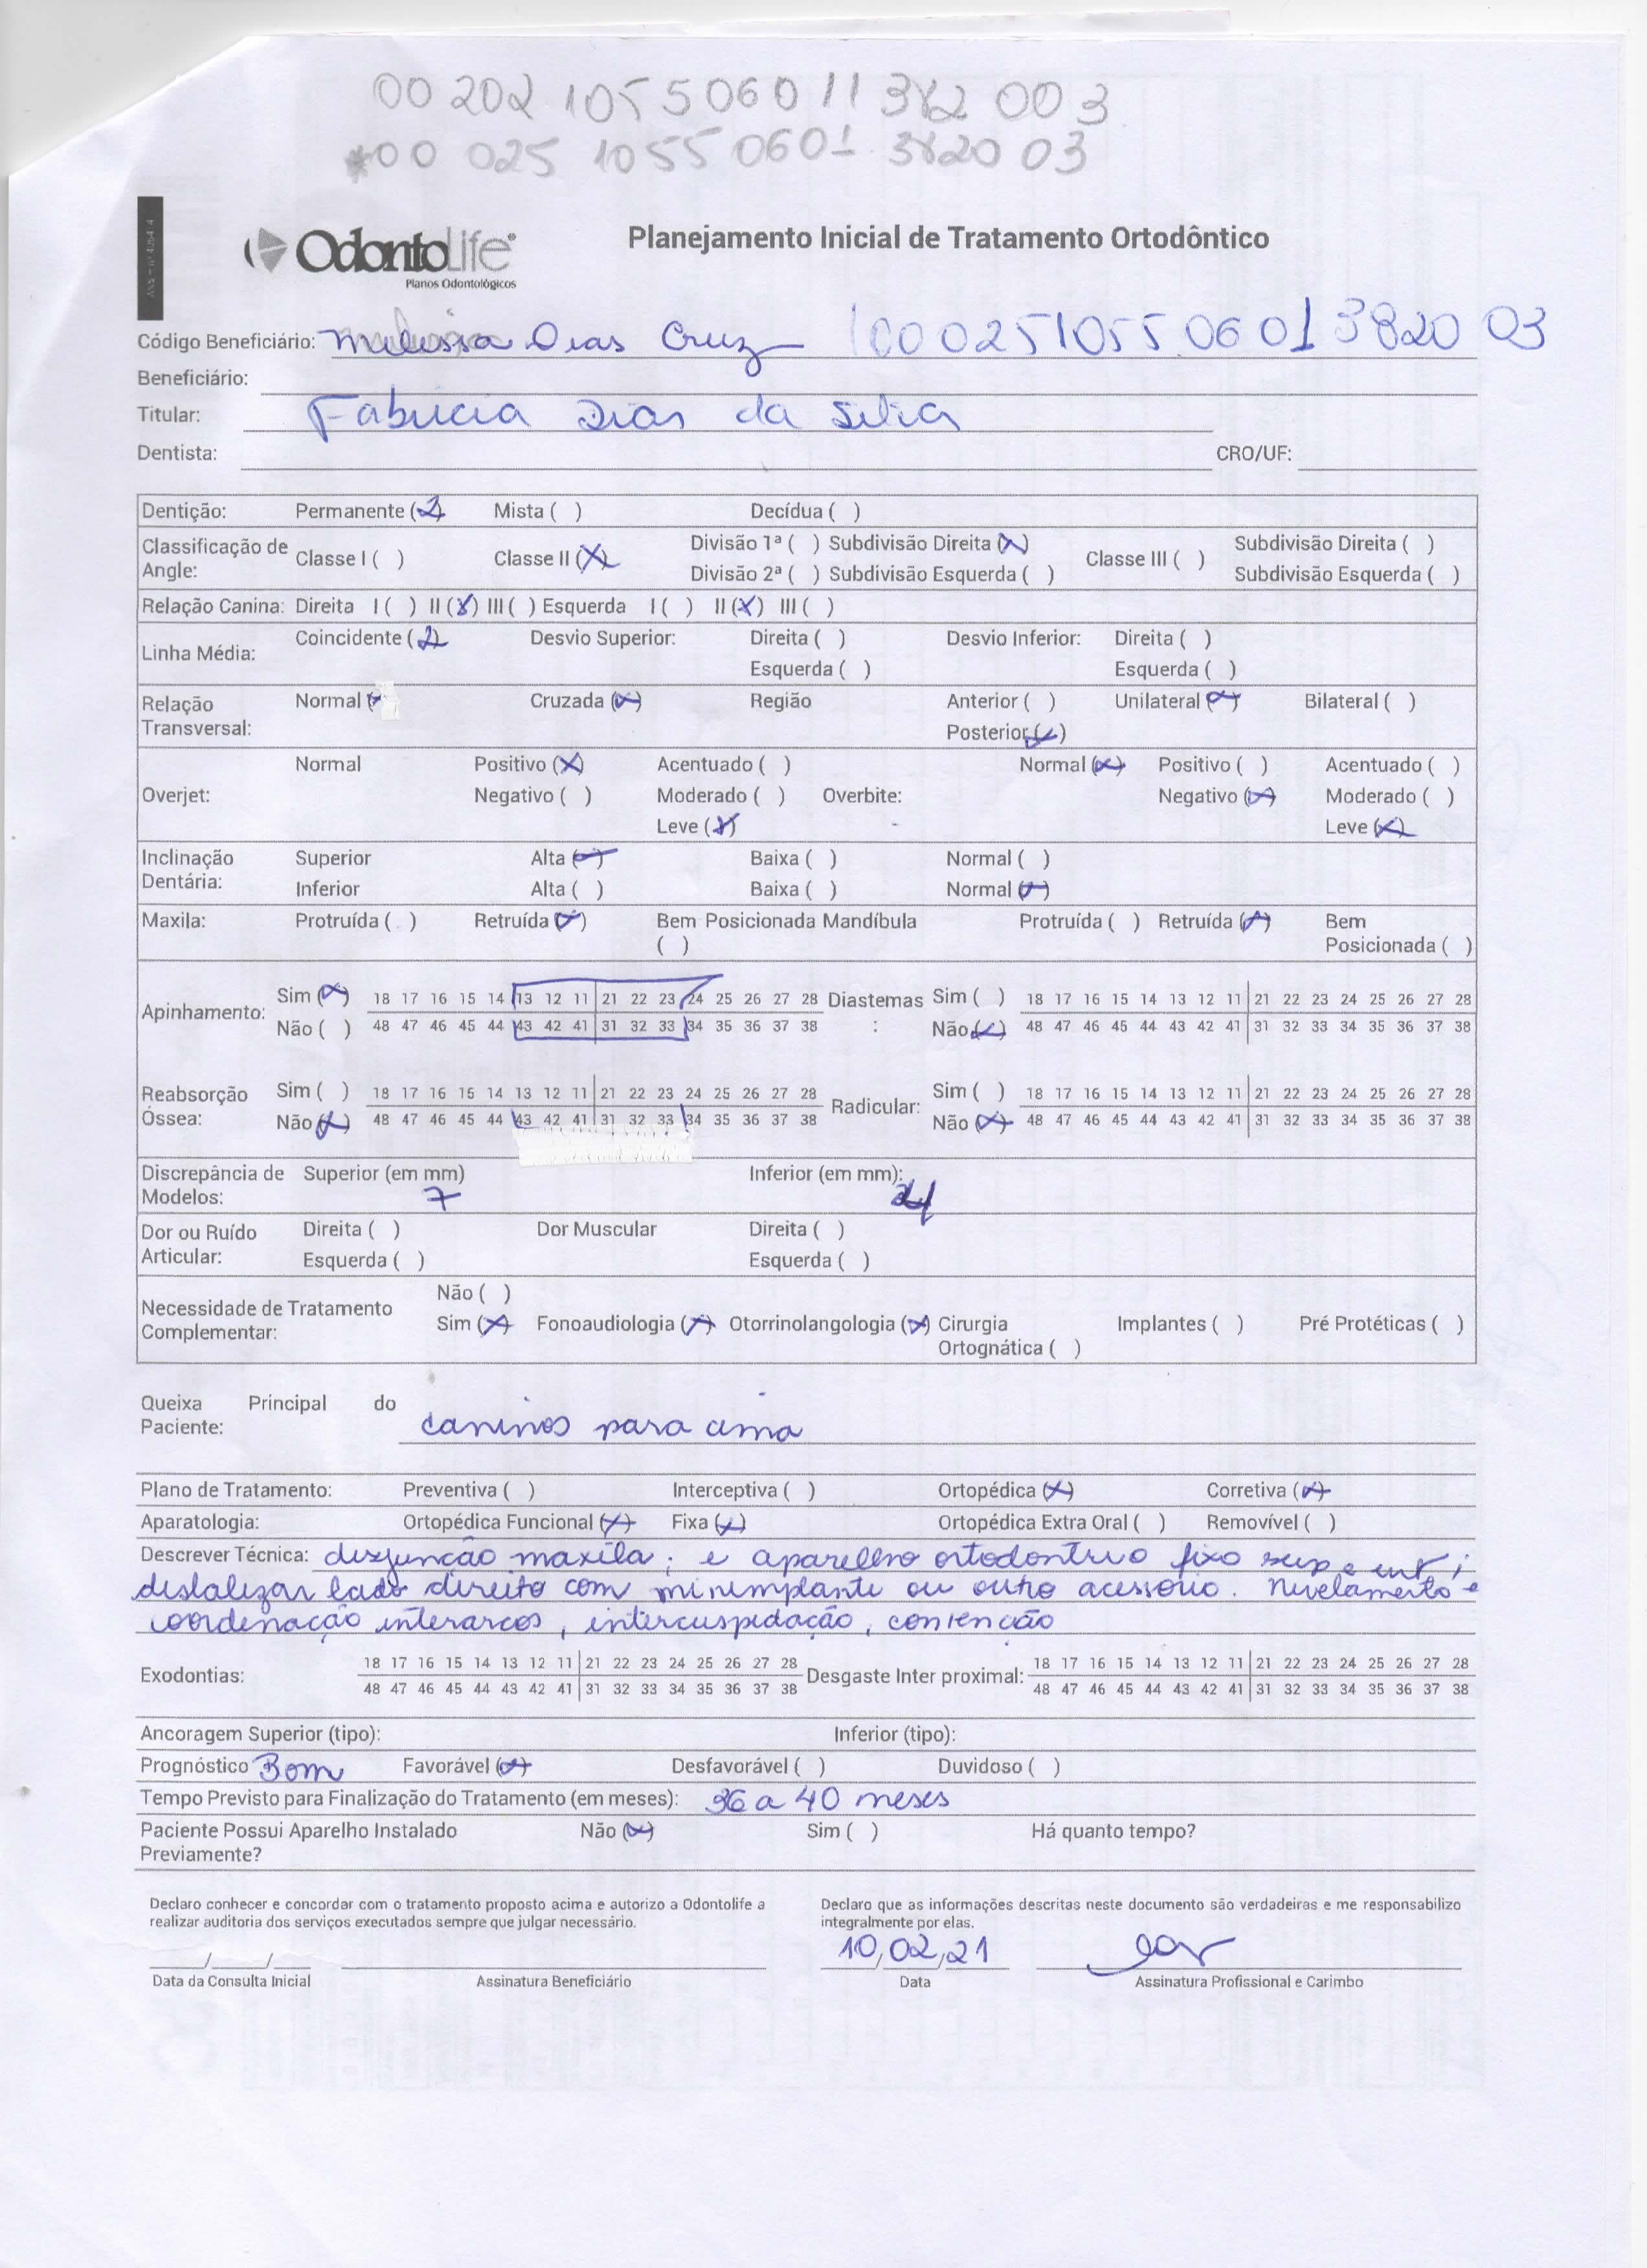 00 202 1055060 11 382 00 3
*00 025 1055 0601 3820 03
OdontoLife®
Planos Odontológicos
Planejamento Inicial de Tratamento Ortodôntico
Código Beneficiário: Melissa Dias Cruz 00025105506013820 03
Beneficiário:
Titular: Fabricia Dias da Silva
Dentista: CRO/UF:
Dentição: Permanente (X) Mista ( ) Decídua ( )
Classificação de Angle: Classe I ( ) Classe II (X) Divisão 1ª ( ) Subdivisão Direita (X) Classe III ( ) Subdivisão Direita ( )
Divisão 2ª ( ) Subdivisão Esquerda ( ) Subdivisão Esquerda ( )
Relação Canina: Direita I ( ) II (X) III ( ) Esquerda I ( ) II (X) III ( )
Linha Média: Coincidente (X) Desvio Superior: Direita ( ) Desvio Inferior: Direita ( )
Esquerda ( ) Esquerda ( )
Relação Transversal: Normal ( Cruzada (X) Região Anterior ( ) Unilateral (X) Bilateral ( )
Posterior (X)
Overjet: Normal Positivo (X) Acentuado ( ) Normal (X) Positivo ( ) Acentuado ( )
Negativo ( ) Moderado ( ) Overbite: Negativo (X) Moderado ( )
Leve (X) Leve (X)
Inclinação Dentária: Superior Alta (X) Baixa ( ) Normal ( )
Inferior Alta ( ) Baixa ( ) Normal (X)
Maxila: Protruída ( ) Retruída (X) Bem Posicionada Mandíbula Protruída ( ) Retruída (X) Bem
( ) Posicionada ( )
Apinhamento: Sim (X) 18 17 16 15 14 13 12 11 21 22 23 24 25 26 27 28 Diastemas Sim ( ) 18 17 16 15 14 13 12 11 21 22 23 24 25 26 27 28
Não ( ) 48 47 46 45 44 43 42 41 31 32 33 34 35 36 37 38 : Não (X) 48 47 46 45 44 43 42 41 31 32 33 34 35 36 37 38
Reabsorção Óssea: Sim ( ) 18 17 16 15 14 13 12 11 21 22 23 24 25 26 27 28 Radicular: Sim ( ) 18 17 16 15 14 13 12 11 21 22 23 24 25 26 27 28
Não (X) 48 47 46 45 44 43 42 41 31 32 33 34 35 36 37 38 Não (X) 48 47 46 45 44 43 42 41 31 32 33 34 35 36 37 38
Discrepância de Modelos: Superior (em mm) 7 Inferior (em mm): 4
Dor ou Ruído Articular: Direita ( ) Dor Muscular Direita ( )
Esquerda ( ) Esquerda ( )
Necessidade de Tratamento Complementar: Não ( )
Sim (X) Fonoaudiologia (X) Otorrinolangologia (X) Cirurgia Ortognática ( ) Implantes ( ) Pré Protéticas ( )
Queixa Principal do Paciente: caninos para cima
Plano de Tratamento: Preventiva ( ) Interceptiva ( ) Ortopédica (X) Corretiva (X)
Aparatologia: Ortopédica Funcional (X) Fixa (X) Ortopédica Extra Oral ( ) Removível ( )
Descrever Técnica: disjunção maxila; e aparelho ortodontrio fixo sup e inf;
distalizar lado direito com miniimplante ou outro acessório. Nivelamento e
coordenação interarcos, intercuspidação, contenção
Exodontias: 18 17 16 15 14 13 12 11 21 22 23 24 25 26 27 28 Desgaste Inter proximal: 18 17 16 15 14 13 12 11 21 22 23 24 25 26 27 28
48 47 46 45 44 43 42 41 31 32 33 34 35 36 37 38 48 47 46 45 44 43 42 41 31 32 33 34 35 36 37 38
Ancoragem Superior (tipo): Inferior (tipo):
Prognóstico Bom Favorável (X) Desfavorável ( ) Duvidoso ( )
Tempo Previsto para Finalização do Tratamento (em meses): 36 a 40 meses
Paciente Possui Aparelho Instalado Previamente? Não (X) Sim ( ) Há quanto tempo?
Declaro conhecer e concordar com o tratamento proposto acima e autorizo a Odontolife a
realizar auditoria dos serviços executados sempre que julgar necessário.
Declaro que as informações descritas neste documento são verdadeiras e me responsabilizo
integralmente por elas.
___/___/___ 10,02,21
Data da Consulta Inicial Assinatura Beneficiário Data Assinatura Profissional e Carimbo